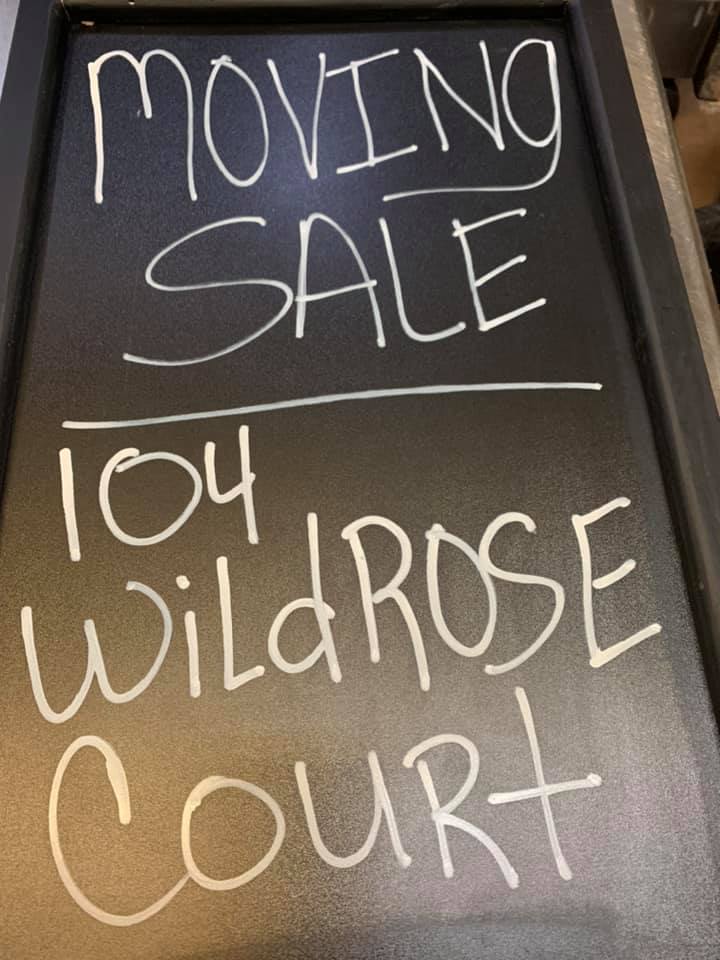 MOVINg
SALE
104
WiLdROSE
COURt